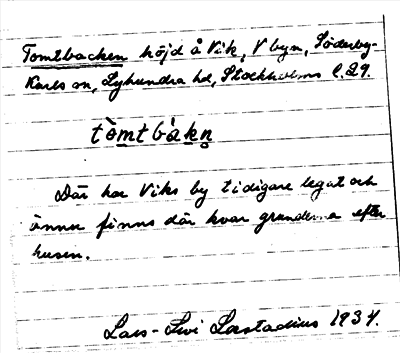 Tomtbacken höjd å Vik, V byn, Söderby-
Karls sn, Lyhundra hd, Stockholms l. 29.
tòmtbàkn̥
Där har Viks by tidigare legat och
ännu finns där kvar grunderna efter
husen.
Lars-Levi Læstadius 1934.